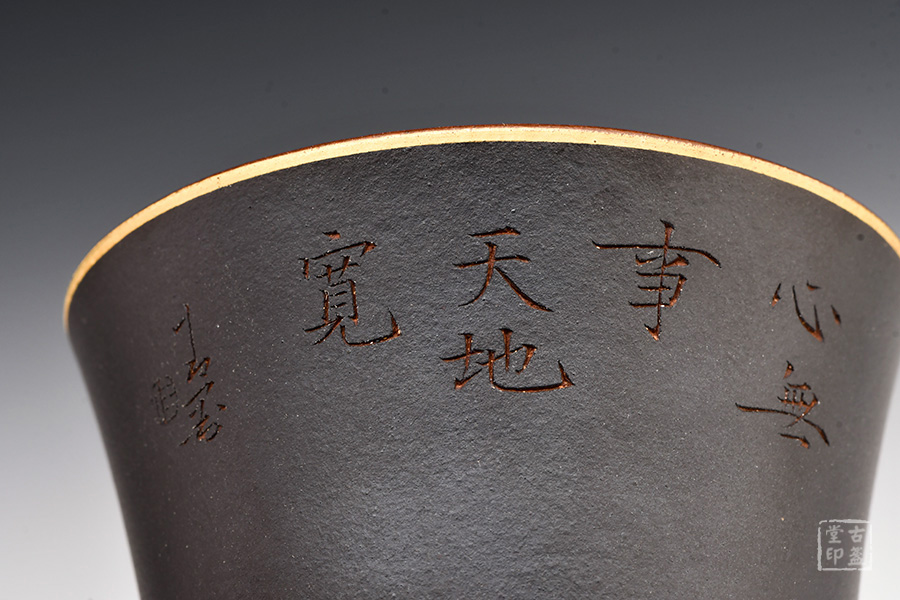 心無
事
天地
寬
古盌
堂印